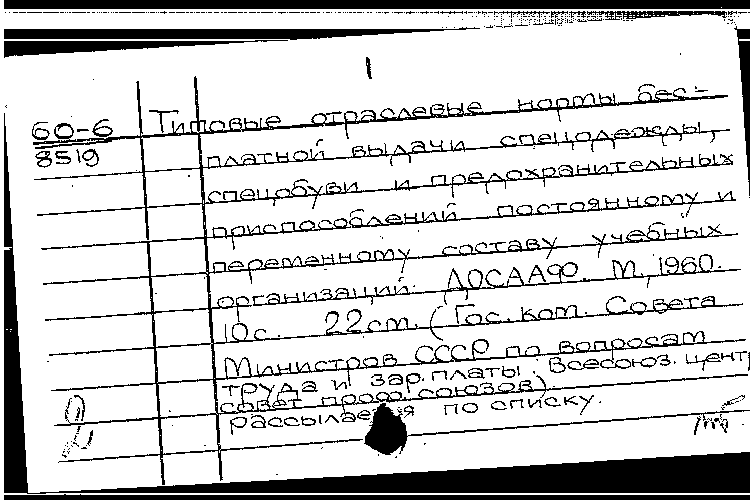 1
60-6 Типовые отраслевые нормы бес-
8519 платной выдачи спецодежды,
спецобуви и предохранительных
приспособлений постоянному и
переменному составу учебных
организаций ДОСААФ. М., 1960.
10 с. 22 см. (Гос. ком. Совета
Министров СССР по вопросам
труда и зар. платы. Всесоюз. центр
совет проф. союзов).
Рассылается по списку.